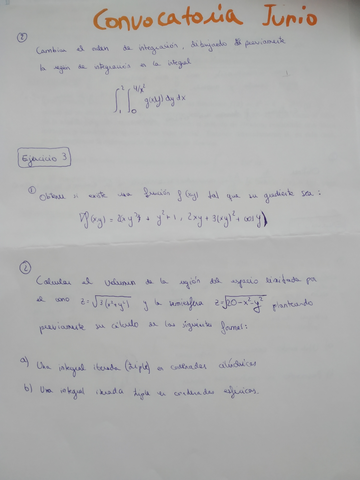 Convocatoria Junio
②
Cambiar el orden de integración, dibujando previamente
la región de integración en la integral
∫₁² ∫₀^{4/x²} g(x,y) dy dx
Ejercicio 3
① Obtener si existe una función f(x,y) tal que su gradiente sea:
∇f(x,y) = (3x²y + y² + 1, 2xy + 3(xy)² + cos y)
②
Calcular el volumen de la región del espacio limitada por
el cono z=√3(x²+y²) y la semiesfera z=√20-x²-y² planteando
previamente su cálculo en las siguientes formas:
a) Una integral iterada (triple) en coordenadas cilíndricas
b) Una integral iterada triple en coordenadas esféricas.